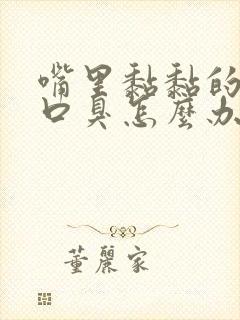 嘴里黏黏的
口臭怎麽办
董麗家